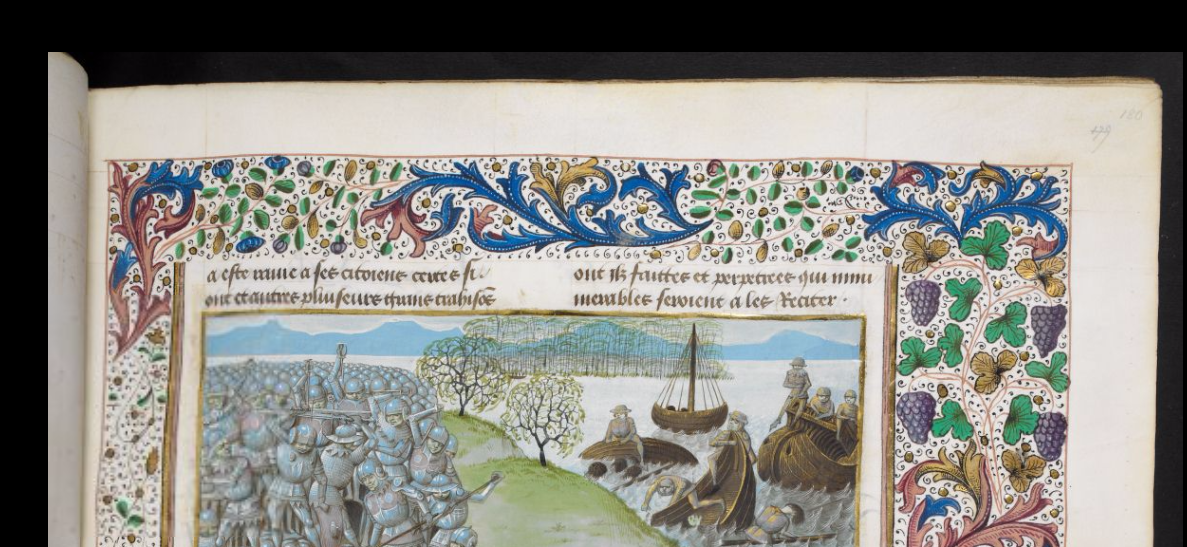 180
479
a este ravie a ses citoiens certes si
ont et autres pluiseurs grans trahisōs
ont ilz faittes et perpetrees qui innu
merables seroient a les Reciter .